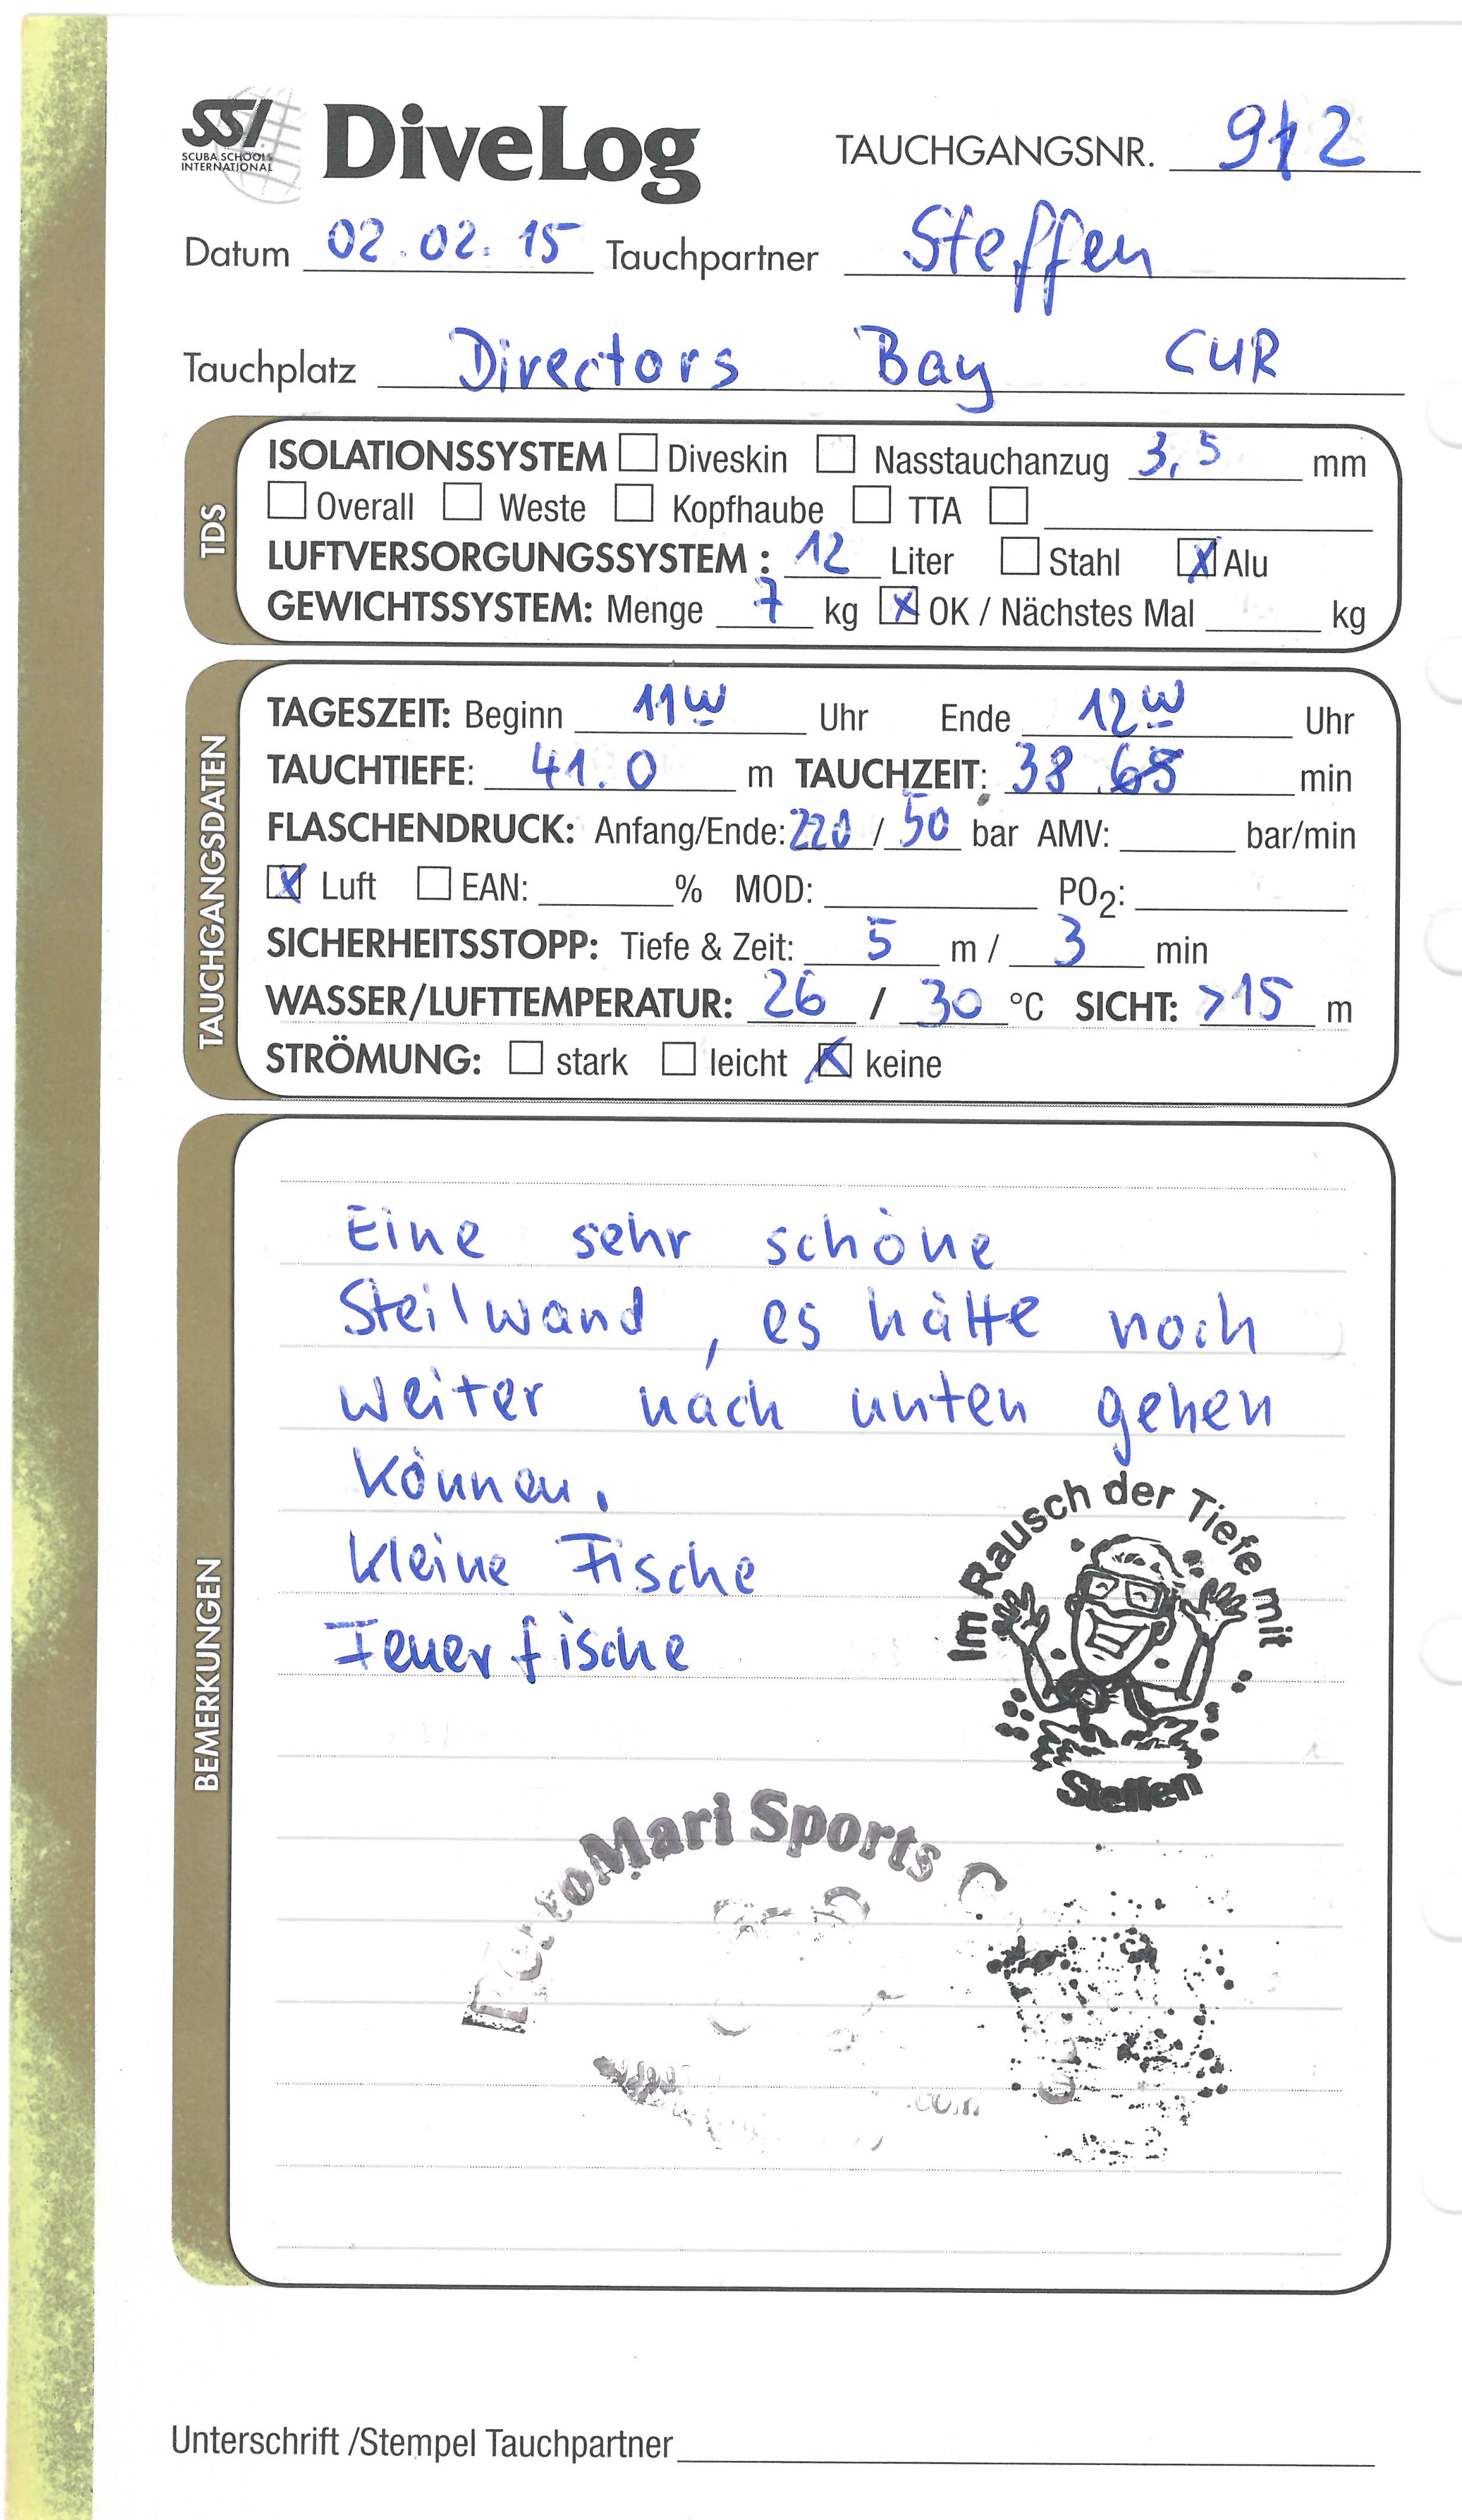 SSI DiveLog TAUCHGANGSNR. 912
SCUBA SCHOOLS
INTERNATIONAL
Datum 02.02.15 Tauchpartner Steffen
Tauchplatz Directors Bay CUR
TDS
ISOLATIONSSYSTEM Diveskin Nasstauchanzug 3,5 mm
Overall Weste Kopfhaube TTA
LUFTVERSORGUNGSSYSTEM : 12 Liter Stahl X Alu
GEWICHTSSYSTEM: Menge 7 kg X OK / Nächstes Mal kg
TAUCHGANGSDATEN
TAGESZEIT: Beginn 11 00 Uhr Ende 12 00 Uhr
TAUCHTIEFE: 41.0 m TAUCHZEIT: 38 min
FLASCHENDRUCK: Anfang/Ende: 220 / 50 bar AMV: bar/min
X Luft EAN: % MOD: PO2:
SICHERHEITSSTOPP: Tiefe & Zeit: 5 m / 3 min
WASSER/LUFTTEMPERATUR: 26 / 30 °C SICHT: >15 m
STRÖMUNG: stark leicht X keine
BEMERKUNGEN
Eine sehr schöne
Steilwand, es hätte noch
weiter nach unten gehen
können.
kleine Fische
Feuerfische
Im Rausch der Tiefe mit
Steffen
PortoMari Sports
.com
Unterschrift /Stempel Tauchpartner